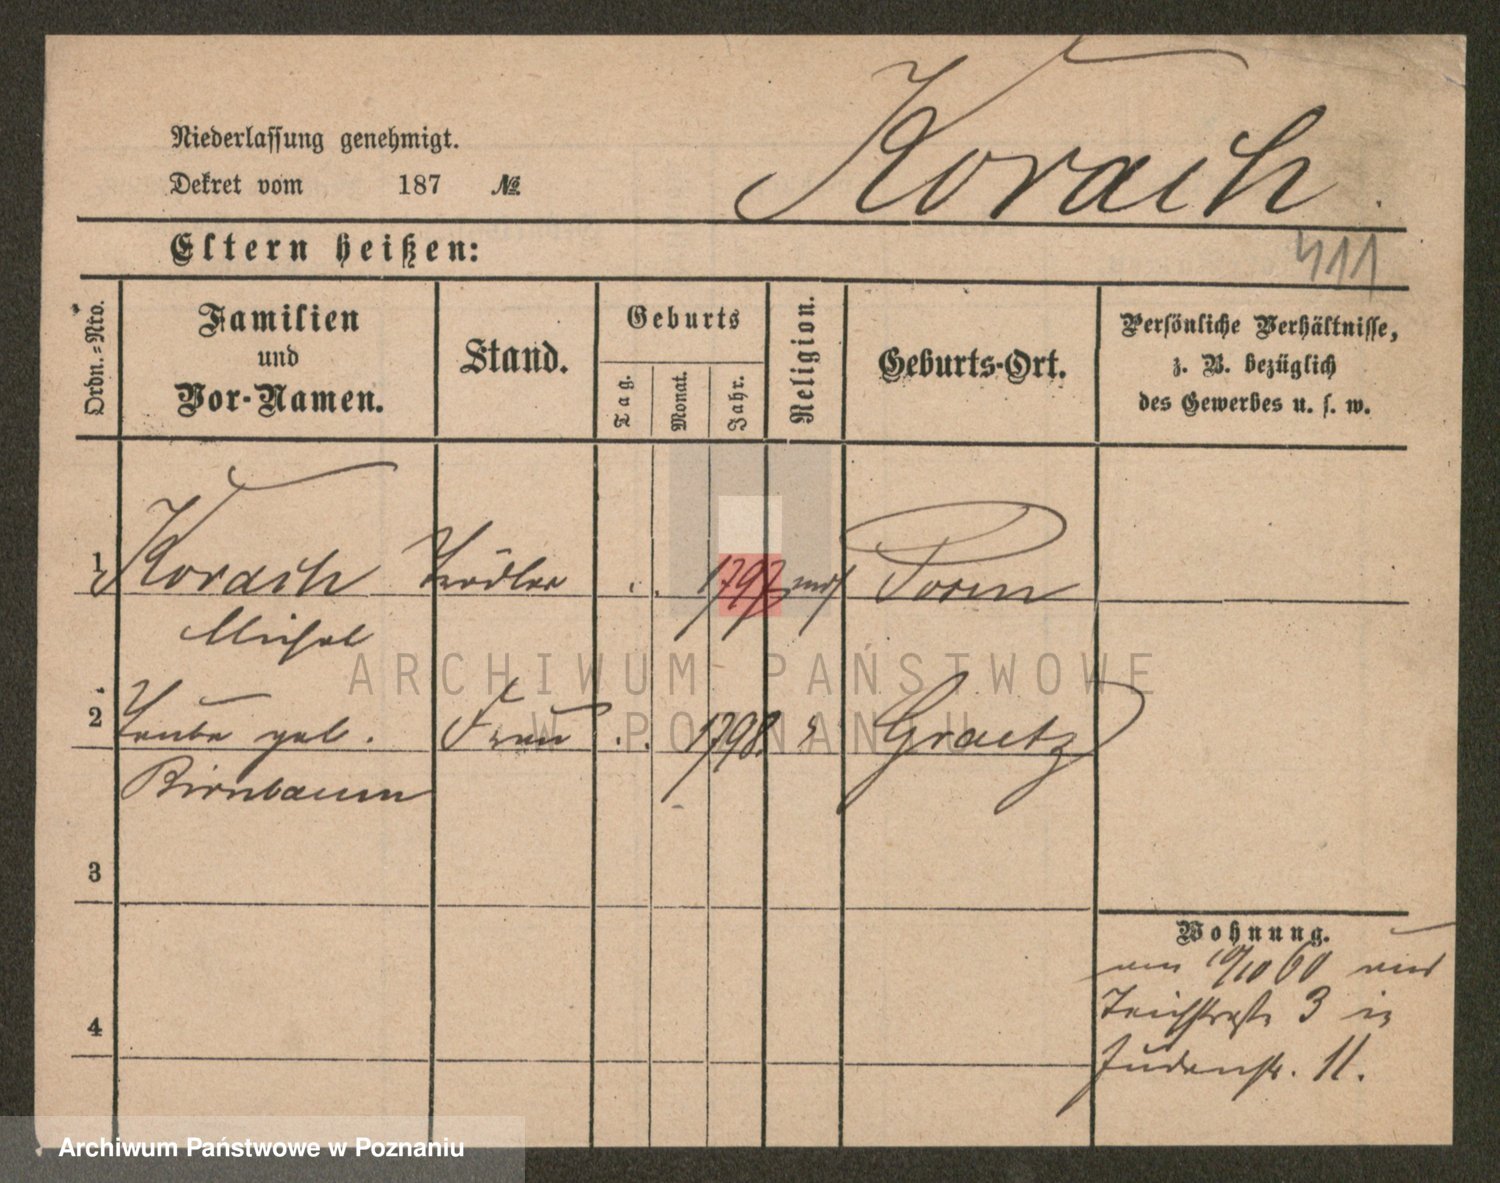 Korach
Niederlassung genehmigt.
Dekret vom 187 №
411
Eltern heißen:
Ordn.-Nro.
Familien
und
Vor-Namen.
Stand.
Geburts
Tag.
Monat.
Jahr.
Religion.
Geburts-Ort.
Persönliche Verhältnisse,
z. B. bezüglich
des Gewerbes u. s. w.
1 Korach Trödler 1797 mos Posen
Michel
2 Taube geb. Frau 1798. Graetz
Birnbaum
3
4
Wohnung.
am 10/10 60 aus
Teichstraße 3 in
Judenstr. 11.
ARCHIWUM PAŃSTWOWE
W POZNANIU
Archiwum Państwowe w Poznaniu